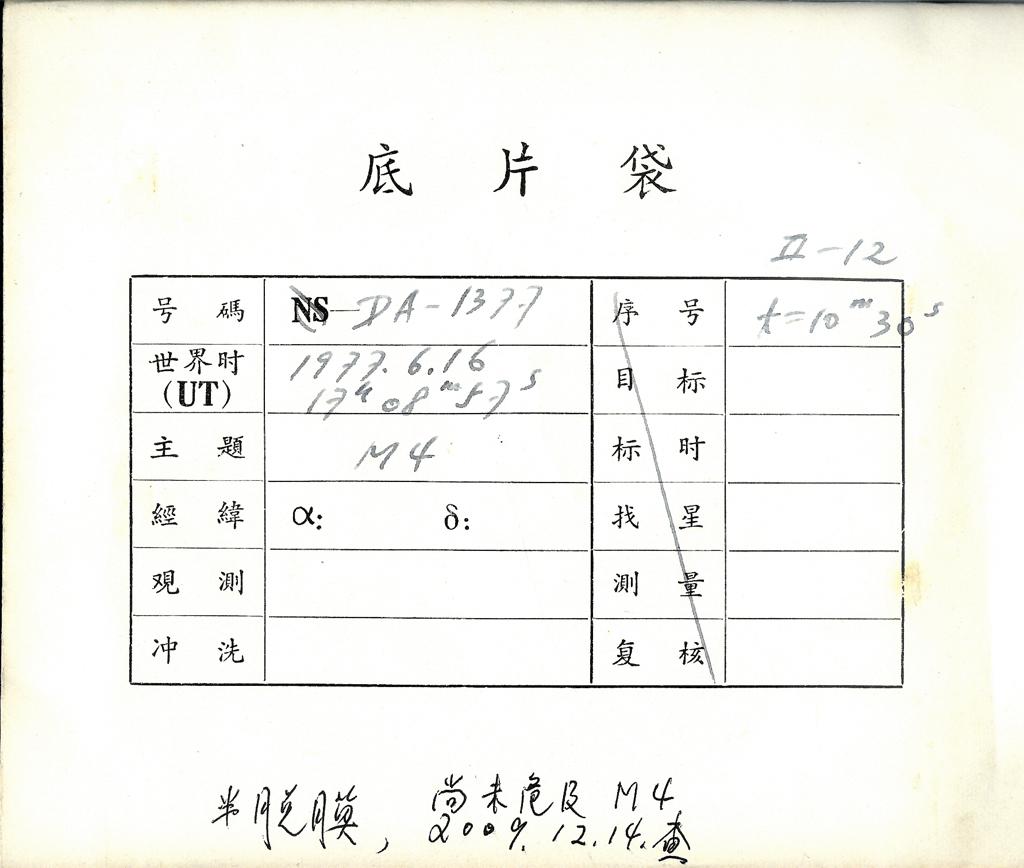 底片袋
II-12
号碼 NS-DA-1377 序号 t=10ᵐ30ˢ
世界时(UT) 1977.6.16 目标
17ʰ08ᵐ57ˢ
主題 M4 标时
經緯 α: δ: 找星
观測 測量
冲洗 复核
半脱膜, 尚未危及 M4
2009.12.14.查